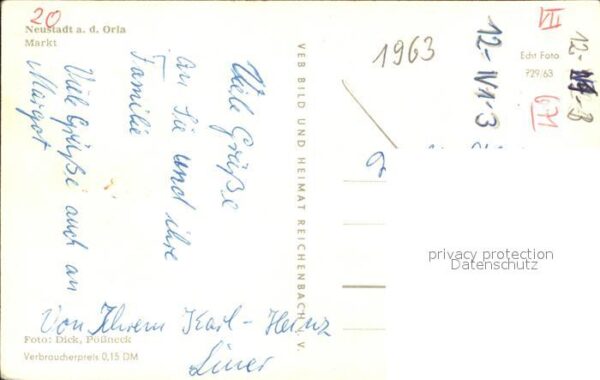 20
Neustadt a. d. Orla
Markt
Viele Grüße
an Sie und ihre
Familie
Viele Grüße auch an
Margot
Von Ihrem Karl-Heinz
Foto: Dick, Pößneck
Verbraucherpreis 0,15 DM
VEB BILD UND HEIMAT REICHENBACH I. V.
1963
12-
VI
Echt Foto
729/63
671
12-
privacy protection
Datenschutz